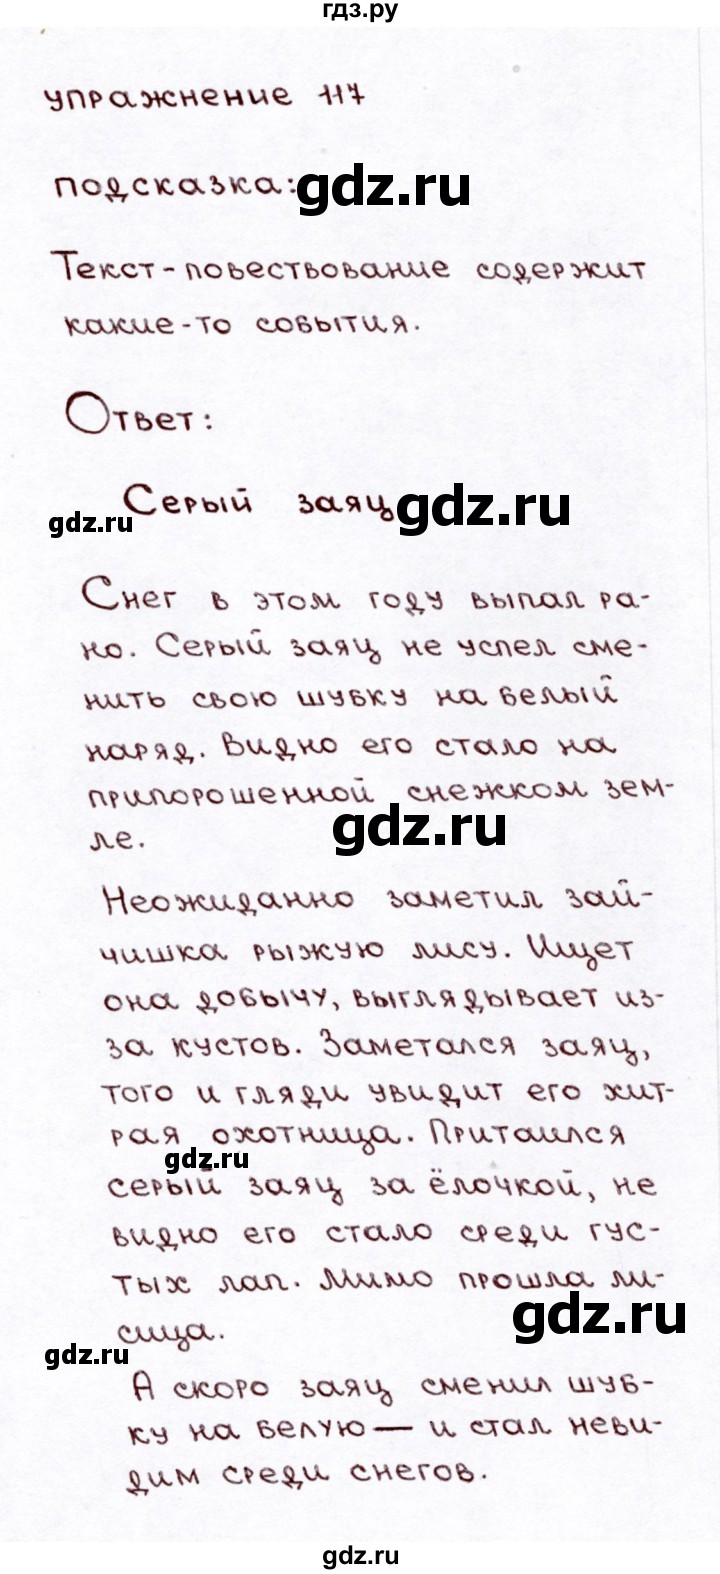 гдз.ру
упражнение 117
подсказка: gdz.ru
Текст-повествование содержит
какие-то события.
Ответ:
Серый заяц gdz.ru
gdz.ru
Снег в этом году выпал ра-
но. Серый заяц не успел сме-
нить свою шубку на белый
наряд. Видно его стало на
припорошенной снежком зем-
gdz.ru
ле.
Неожиданно заметил зай-
чишка рыжую лису. Ищет
она добычу, выглядывает из-
за кустов. Заметался заяц,
того и гляди увидит его хит-
рая охотница. Притаился
gdz.ru
серый заяц за ёлочкой, не
видно его стало среди гус-
тых лап. Мимо прошла ли-
gdz.ru
сица.
gdz.ru
А скоро заяц сменил шуб-
ку на белую — и стал неви-
дим среди снегов.
gdz.ru